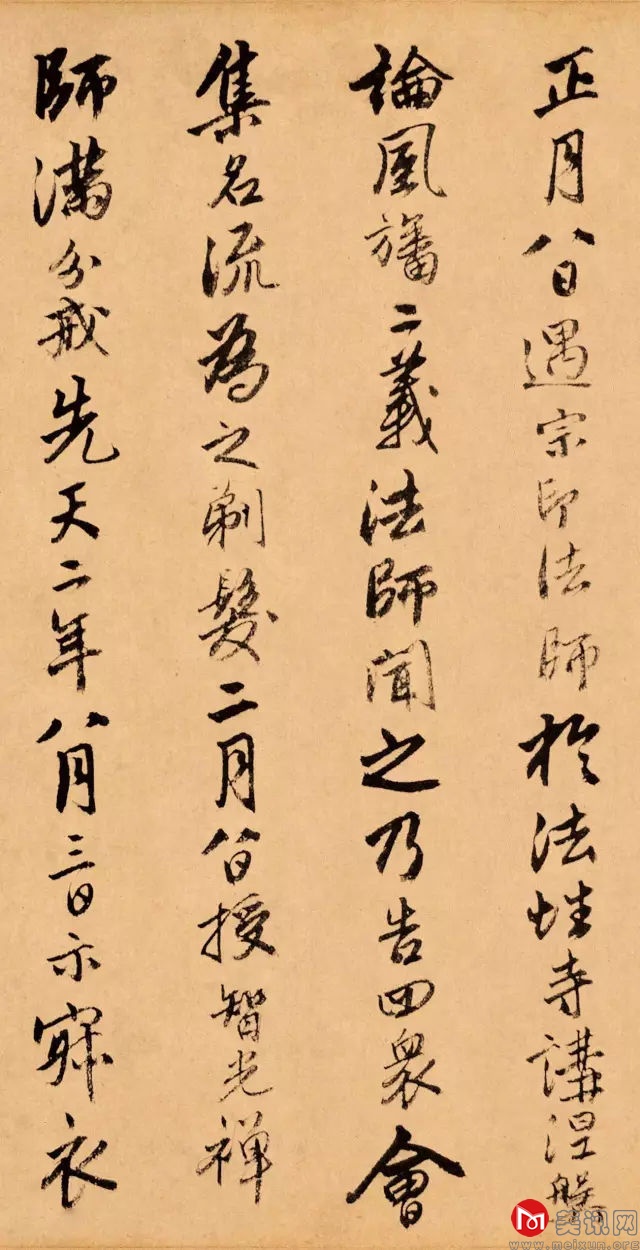 正月八日遇宗印法師於法性寺講涅槃
論風旛二義法師聞之乃告四眾會
集名流為之剃髮二月八日授智光禪
師滿分戒先天二年八月三日示寂衣
美讯网
www.meixun.org